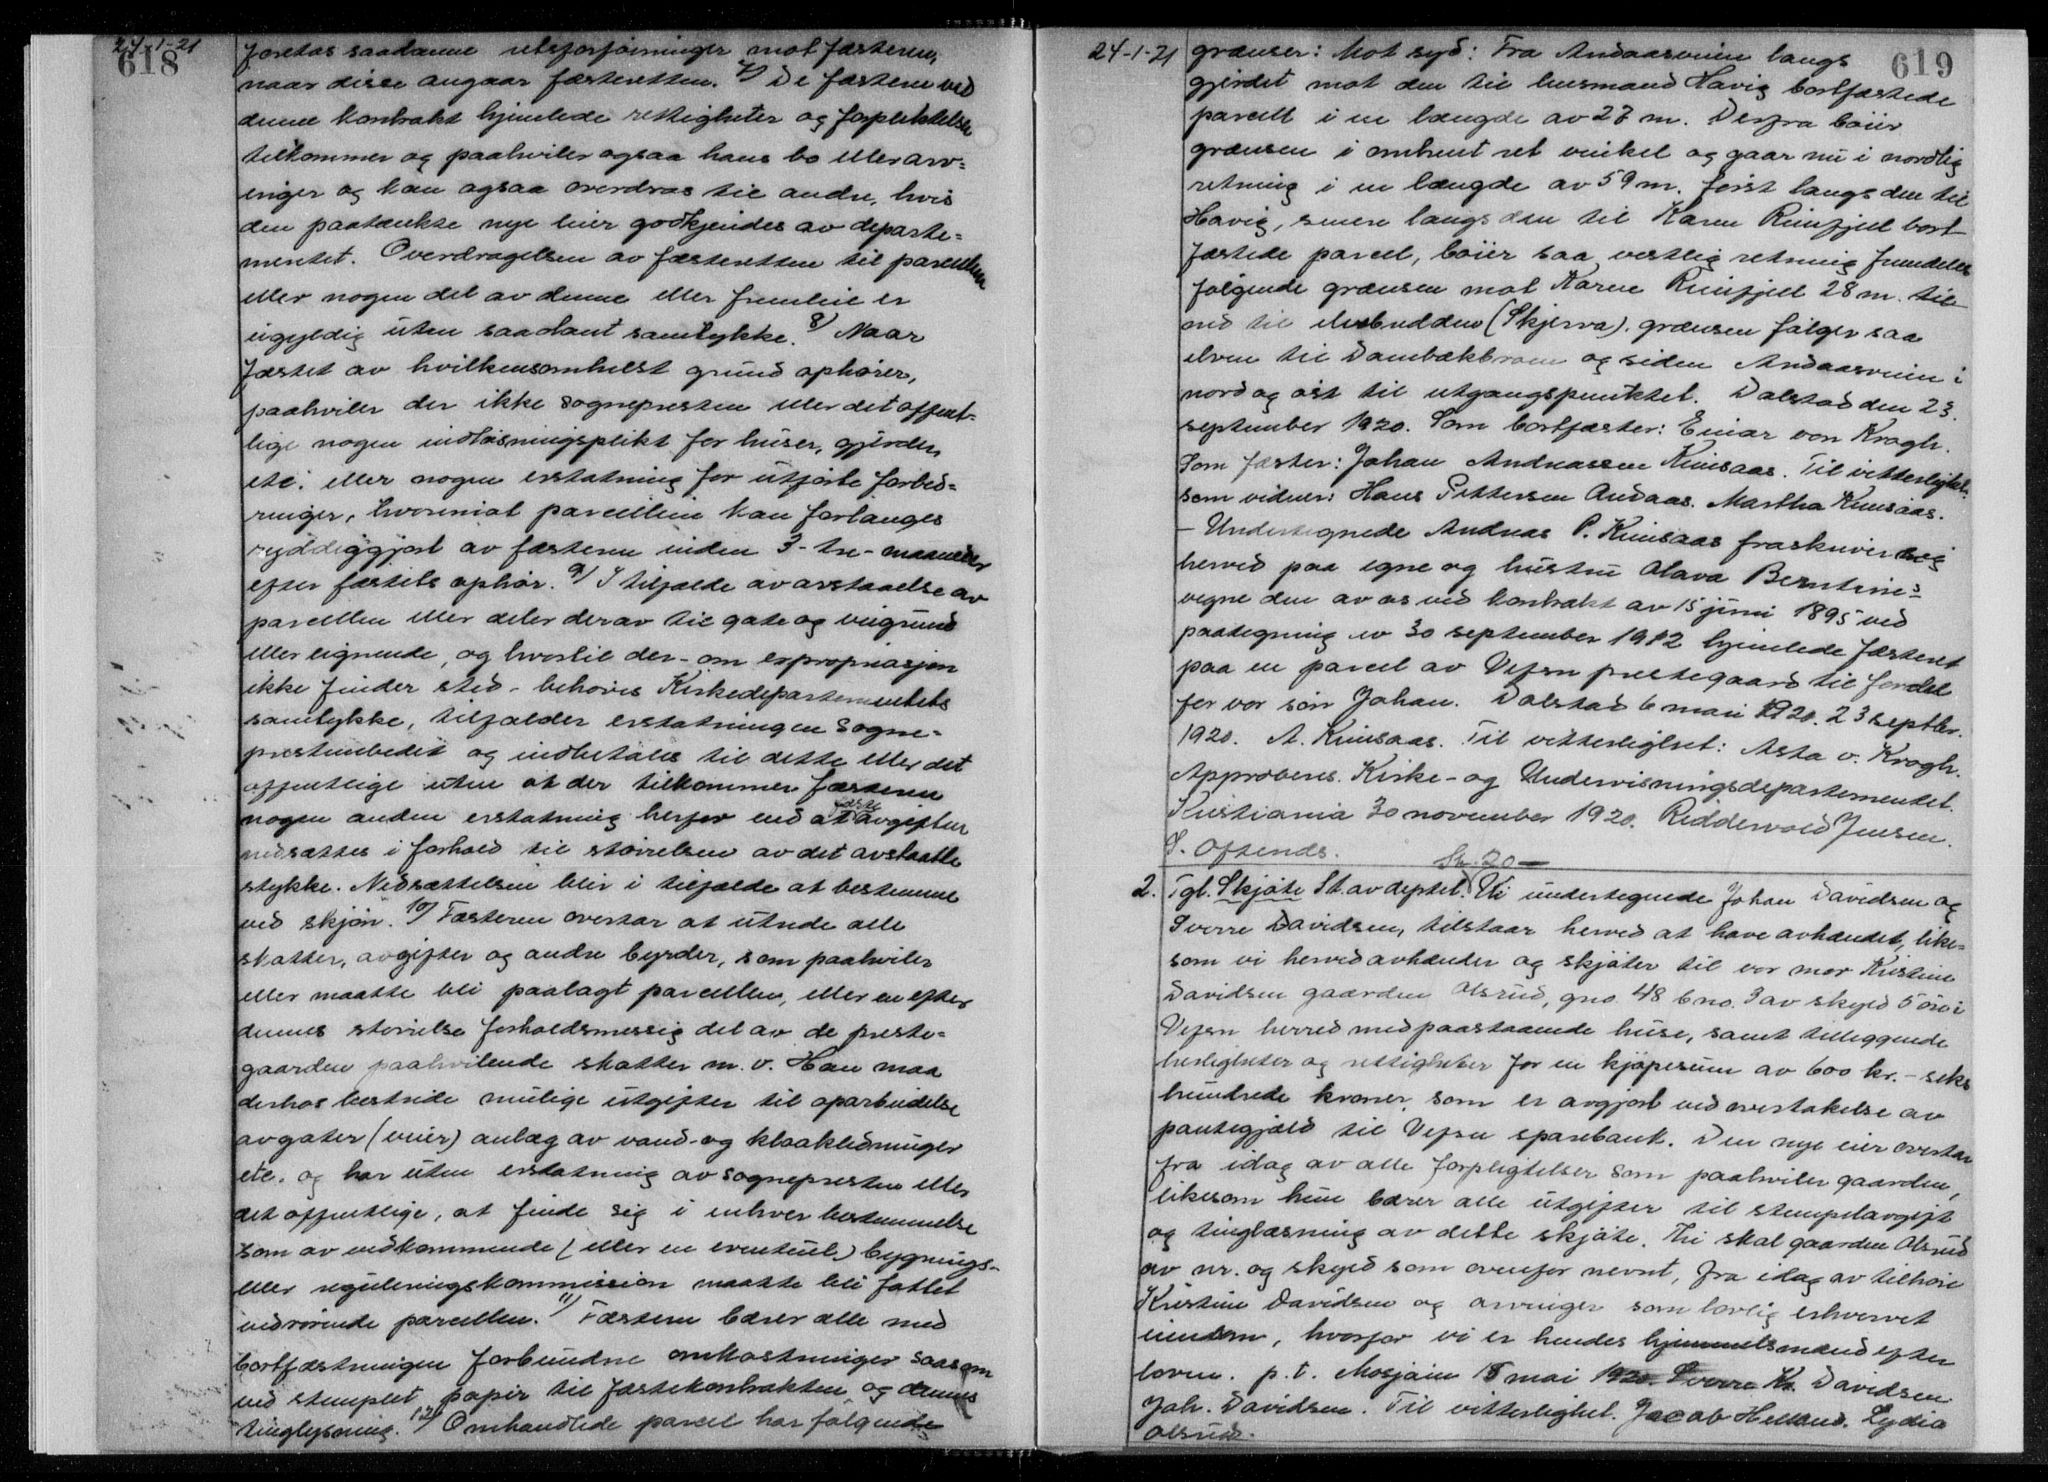 24-1-21
618
foretas saadanne retsforføininger mot fæsteren,
naar disse angaar fæsteretten. 7/ De fæsteren ved
denne kontrakt hjemlede rettigheter og forpliktelser
tilkommer og paahviler ogsaa hans bo eller arv-
inger og kan ogsaa overdras til andre, hvis
den paatænkte nye leier godkjendes av departe-
mentet. Overdragelsen av fæsteretten til parcellen
eller nogen del av denne eller fremleie er
ugyldig uten saadant samtykke. 8/ Naar
fæstet av hvilkensomhelst grund ophører,
paahviler der ikke sognepresten eller det offent-
lige nogen indløsningsplikt for huser, gjerder,
etc. eller nogen erstatning for utførte forbed-
ringer, hvorimot parcellen kan forlanges
ryddiggjort av fæsteren inden 3-tre-maaneder
efter fæstets ophør. 9/ I tilfælde av avstaaelse av
parcellen eller deler derav til gate og veigrund
eller lignende, og hvortil der - om expropriasjon
ikke finder sted - behøves Kirkedepartementets
samtykke, tilfalder erstatningen sogne-
prestembedet og indbetales til dette eller det
offentlige uten at der tilkommer fæsteren
nogen anden erstatning herfor end at fæsteavgiften
nedsættes i forhold til størrelsen av det avstaatte
stykke. Nedsættelsen blir i tilfælde at bestemme
ved skjøn. 10/ Fæsteren overtar at utrede alle
skatter, avgifter og andre byrder, som paahviler
eller maatte bli paalagt parcellen, eller en efter
dennes størrelse forholdsmessig del av de preste-
gaarden paahvilende skatter m. v. Han maa
derhos bestride mulige utgifter til oparbeidelse
av gater (veier) anlæg av vand- og kloakledninger
etc. og har uten erstatning av sognepresten eller
det offentlige, at finde sig i enhver bestemmelse
som av vedkommende (eller en eventuel) bygnings-
eller reguleringskommission maatte bli fattet
vedrørende parcellen. 11/ Fæsteren bærer alle med
bortfæstningen forbundne omkostninger saasom
ved stemplet papir til fæstekontrakten og dennes
tinglysning. 12/ Omhandlede parcel har følgende
24-1-21
619
grænser: Mot syd: Fra Andaasveien langs
gjerdet mot den til husmand Havig bortfæstede
parcell i en længde av 28 m. Derfra bøier
grænsen i omtrent ret vinkel og gaar nu i nordlig
retning i en længde av 59 m. først langs den til
Havig, senere langs den til Karen Reinfjell bort
fæstede parcel, bøier saa vestlig retning fremdeles
følgende grænsen mot Karen Reinfjell 28 m. til
ned til elvebredden (Skjerva). grænsen følger saa
elven til Dambækbroen og siden Andaasveien i
nord og øst til utgangspunktet. Dalstad den 23.
september 1920. Som bortfæster: Einar von Krogh.
Som fæster: Johan Andreassen Kuusaas. Til vitterlighet
som vidner: Hans Pettersen Andaas. Martha Kuusaas.
- Undertegnede Andreas P. Kuusaas fraskriver sig
herved paa egne og hustru Olava Berntine's
vegne den av os ved kontrakt av 15 juni 1895 ved
paategning av 30 september 1912 hjemlede fæsteret
paa en parcel av Vefsn prestegaard til fordel
for vor søn Johan. Dalstad 6 mai 1920. 23 septbr.
1920. A. Kuusaas. Til vitterlighet: Asta v. Krogh.
Approberes. Kirke- og Undervisningsdepartementet.
Kristiania 30 november 1920. Riddervold Jensen.
S. Oftends.
St. 20 -
2. Tgl. Skjøte St. av deptet. Vi undertegnede Johan Davidsen og
Sverre Davidsen, tilstaar herved at have avhændet, like-
som vi herved avhænder og skjøter til vor mor Kristine
Davidsen gaarden Olsrud, gno. 48 bno. 3 av skyld 5 øre i
Vefsn herred med paastaaende huse, samt tilleggende
herligheter og rettigheter for en kjøpesum av 600 kr. - seks
hundrede kroner, som er avgjort ved overtakelse av
pantegjæld til Vefsn sparebank. Den nye eier overtar
fra idag av alle forpligtelser som paahviler gaarden,
likesom hun bærer alle utgifter til stempelavgift
og tinglæsning av dette skjøte. Thi skal gaarden Olsrud
av nr. og skyld som ovenfor nevnt, fra idag av tilhøre
Kristine Davidsen og arvinger som lovlig erhvervet
eiendom, hvorfor vi er hendes hjemmelsmænd efter
loven. p. t. Mosjøen 18 mai 1920. Sverre Kr. Davidsen
Joh. Davidsen. Til vitterlighet. Jacob Helland. Lydia
Olsrud.